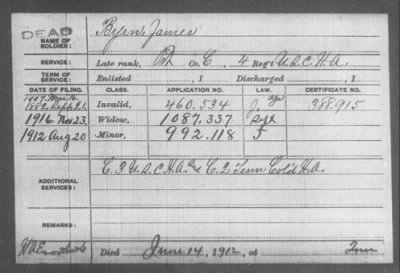 DEAD
NAME OF SOLDIER: Byrne James
SERVICE: Late rank, Pvt Co. C, 4 Reg't U.S.C.H.A.
TERM OF SERVICE: Enlisted , 1 Discharged , 1
DATE OF FILING. CLASS. APPLICATION NO. LAW. CERTIFICATE NO.
1907
1882 Sept 21. Invalid, 460.534 J. age 388.915
1916 Nov 23, Widow, 1087.337
1912 Aug 20 Minor, 992.118 J
ADDITIONAL SERVICES: C. 3 U.S.C.H.A. & C. 2 Tenn Col'd H.A.
REMARKS:
Died June 14, 1912, at Tenn